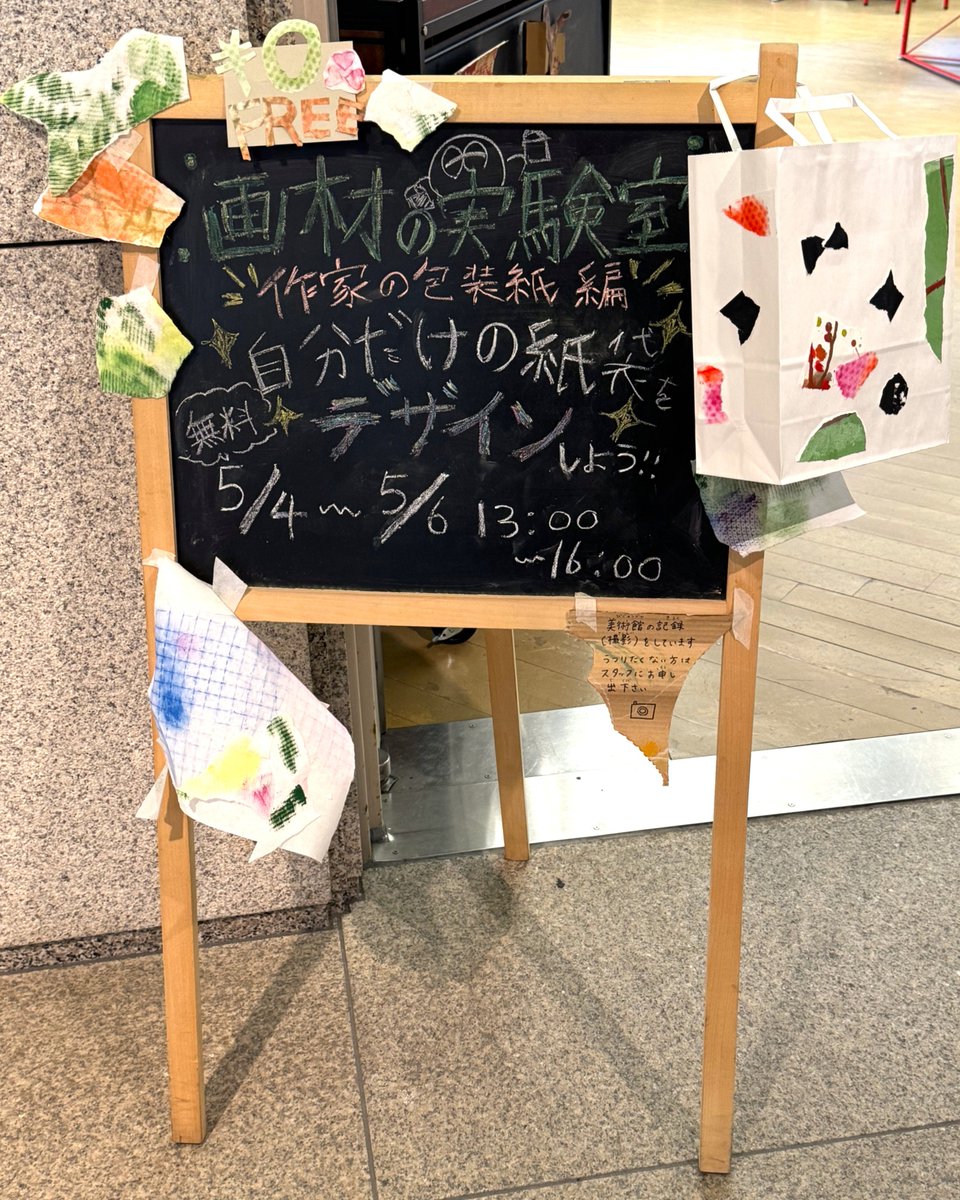 ¥0
FREE
画材の実験室
作家の包装紙 編
自分だけの紙袋を
無料
デザイン
しよう!!
5/4〜5/6 13:00
〜16:00
美術館の記録
(撮影)をしています
うつりたくない方は
スタッフにお申し
出下さい